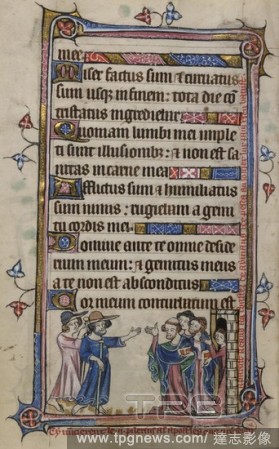 mee
Miser factus sum & curvatus
sum usq; in finem: tota die cō
tristatus ingrediebar
Quoniam lumbi mei imple
ti sunt illusionib;: & non est sa
nitas in carne mea
Afflictus sum & humiliatus
sum nimis: rugiebam a gemi
tu cordis mei
Domine ante te omne deside
rium meum: & gemitus meus
a te non est absconditus
Cor meum conturbatum est
TPG
www.tpgnews.com/ 達志影像